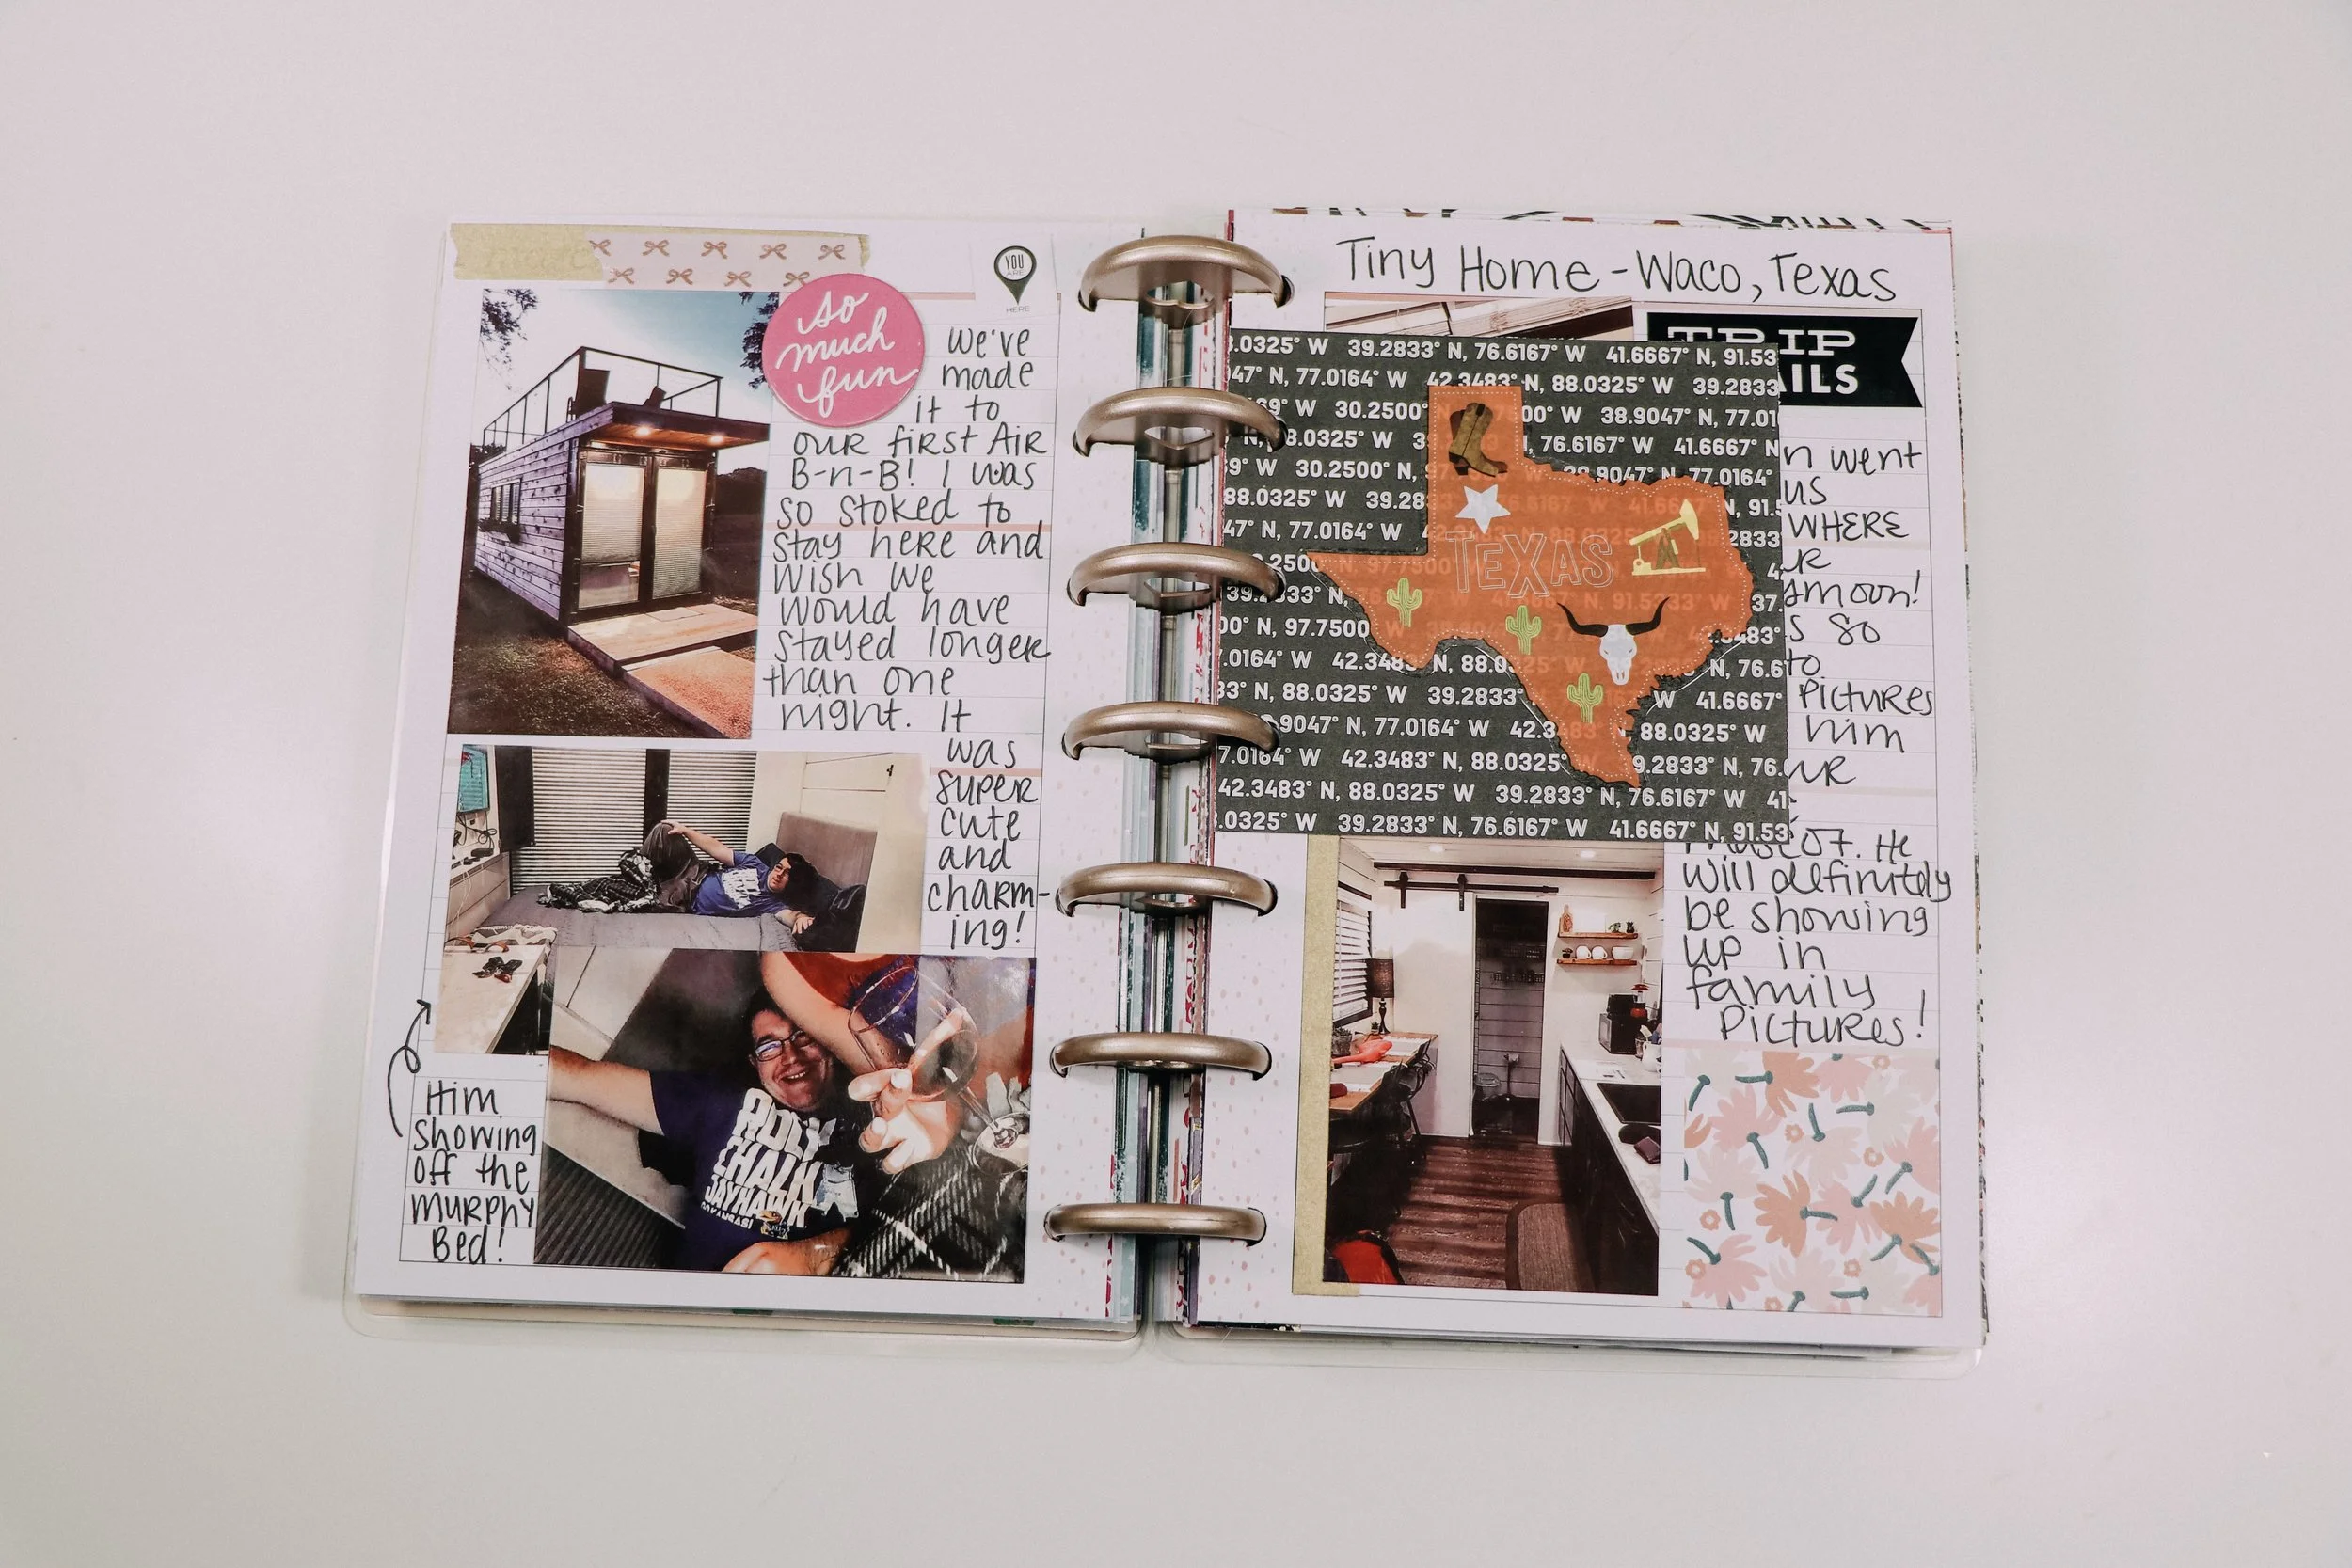 so
much
fun
YOU
ARE
HERE
We've
made
it to
our first Air
B-n-B! I was
so stoked to
stay here and
wish we
would have
stayed longer
than one
night. It
was
super
cute
and
charm-
ing!
Him
showing
off the
murphy
Bed!
ROCK
CHALK
JAYHAWK
Tiny Home - Waco, Texas
TRIP
AILS
.0325° W 39.2833° N, 76.6167° W 41.6667° N, 91.53
47° N, 77.0164° W 42.3483° N, 88.0325° W 39.2833
69° W 30.2500° 00° W 38.9047° N, 77.01
N, 8.0325° W 3 , 76.6167° W 41.6667° N
9° W 30.2500° N, 9047° N, 77.0164°
88.0325° W 39.28 6167° W 41.66 N, 91.5
47° N, 77.0164° W 2833
TEXAS
2500 N, 97.7500 4
39. 33° N, N, 91.5233° W 37.
00° N, 97.7500 3483°
.0164° W 42.3483 N, 88.0 N, 76.6
33° N, 88.0325° W 39.2833° W 41.6667°
9047° N, 77.0164° W 42.3 88.0325° W
7.0164° W 42.3483° N, 88.0325° 9.2833° N, 76.
42.3483° N, 88.0325° W 39.2833° N, 76.6167° W 41
.0325° W 39.2833° N, 76.6167° W 41.6667° N, 91.53
n went
us
WHERE
R
moon!
s so
to
Pictures
him
ur
mascot. He
will definitely
be showing
up in
family
Pictures!